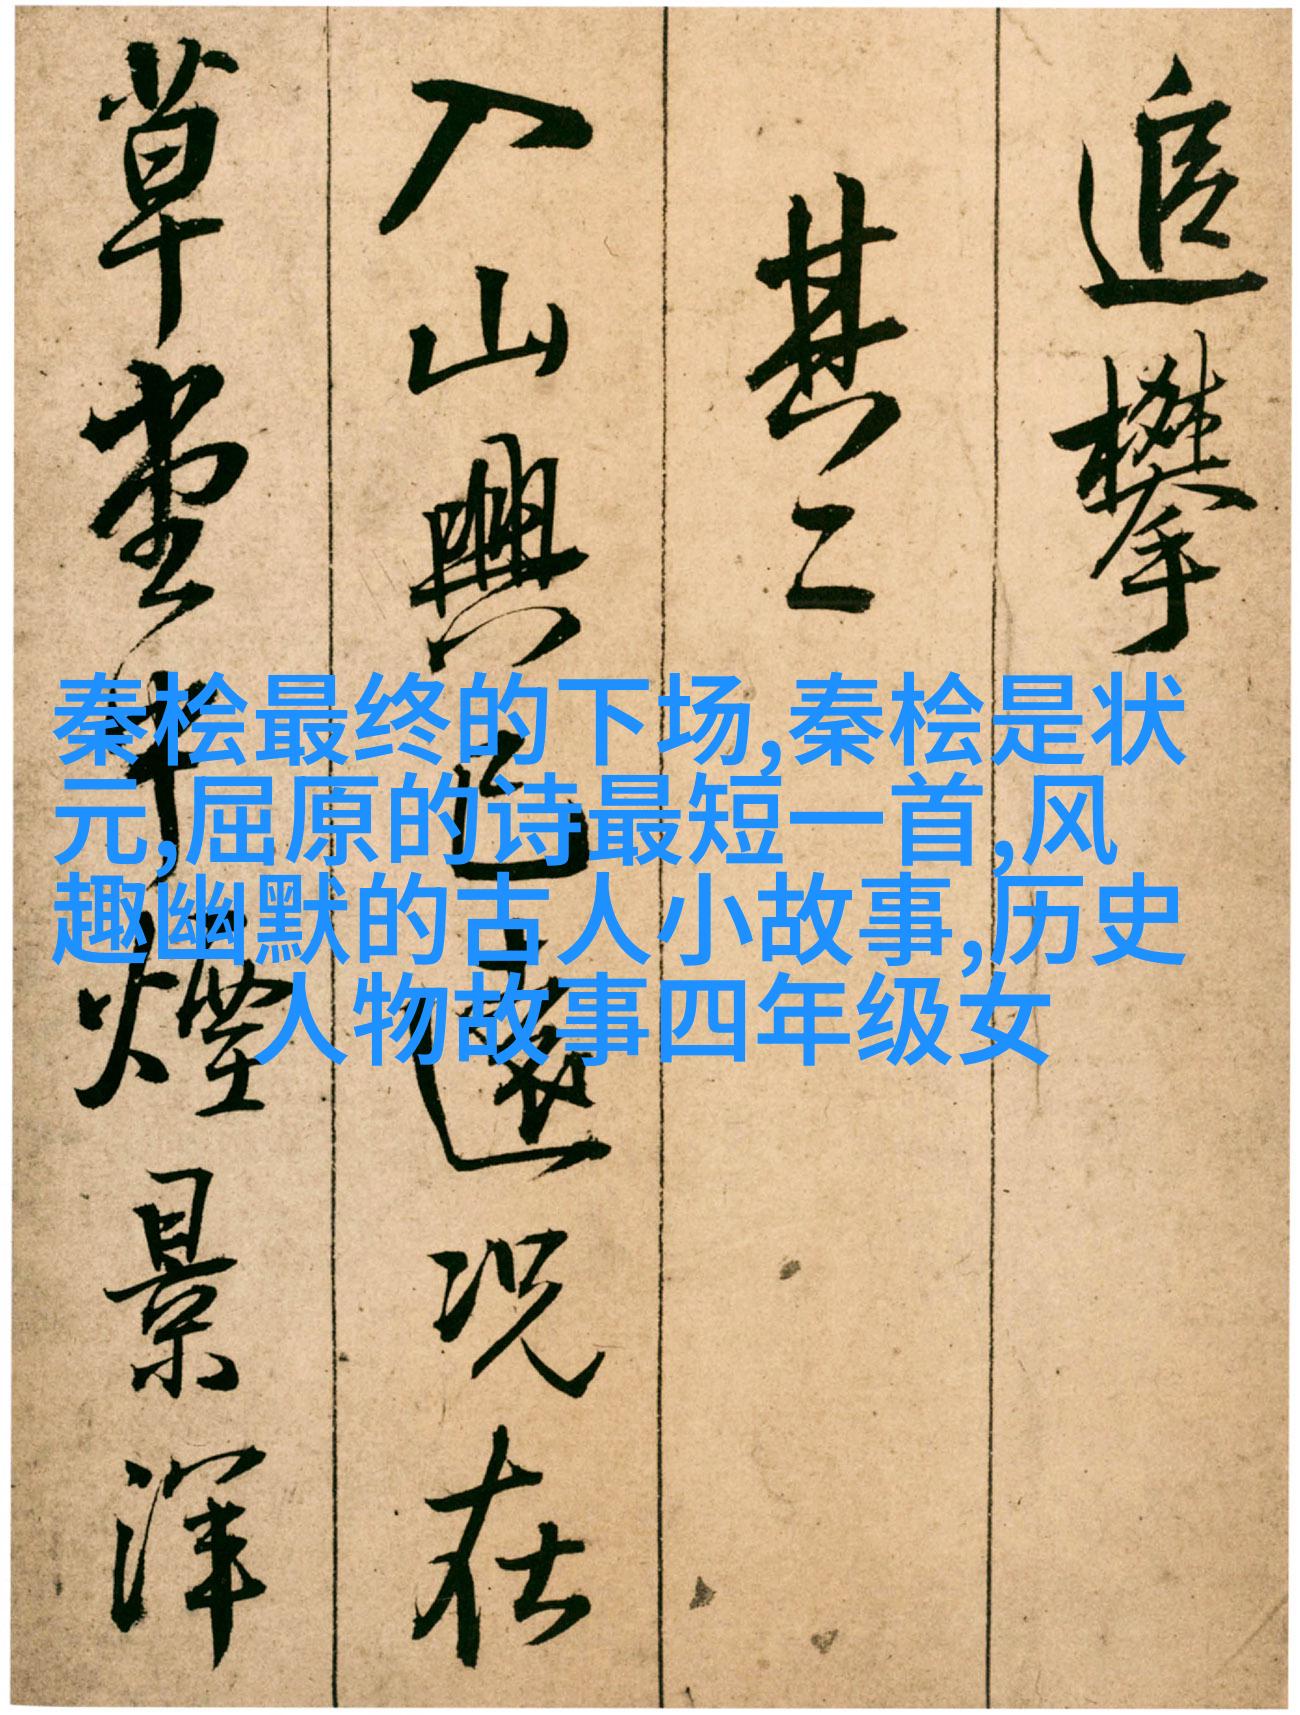 追攀
其二
入山興已遠况在
草堂中煙景渾
秦桧最终的下场,秦桧是状
元,屈原的诗最短一首,风
趣幽默的古人小故事,历史
人物故事四年级女